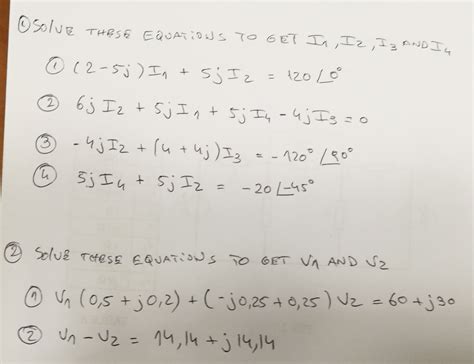 ① SOLVE THESE EQUATIONS TO GET I1, I2, I3 AND I4
① (2-5j)I1 + 5jI2 = 120∠0°
② 6jI2 + 5jI1 + 5jI4 - 4jI3 = 0
③ -4jI2 + (4+4j)I3 = -120°∠90°
④ 5jI4 + 5jI2 = -20∠-45°
② SOLVE THESE EQUATIONS TO GET V1 AND V2
① V1(0,5+j0,2) + (-j0,25+0,25)V2 = 60+j30
② V1-V2 = 14,14+j14,14